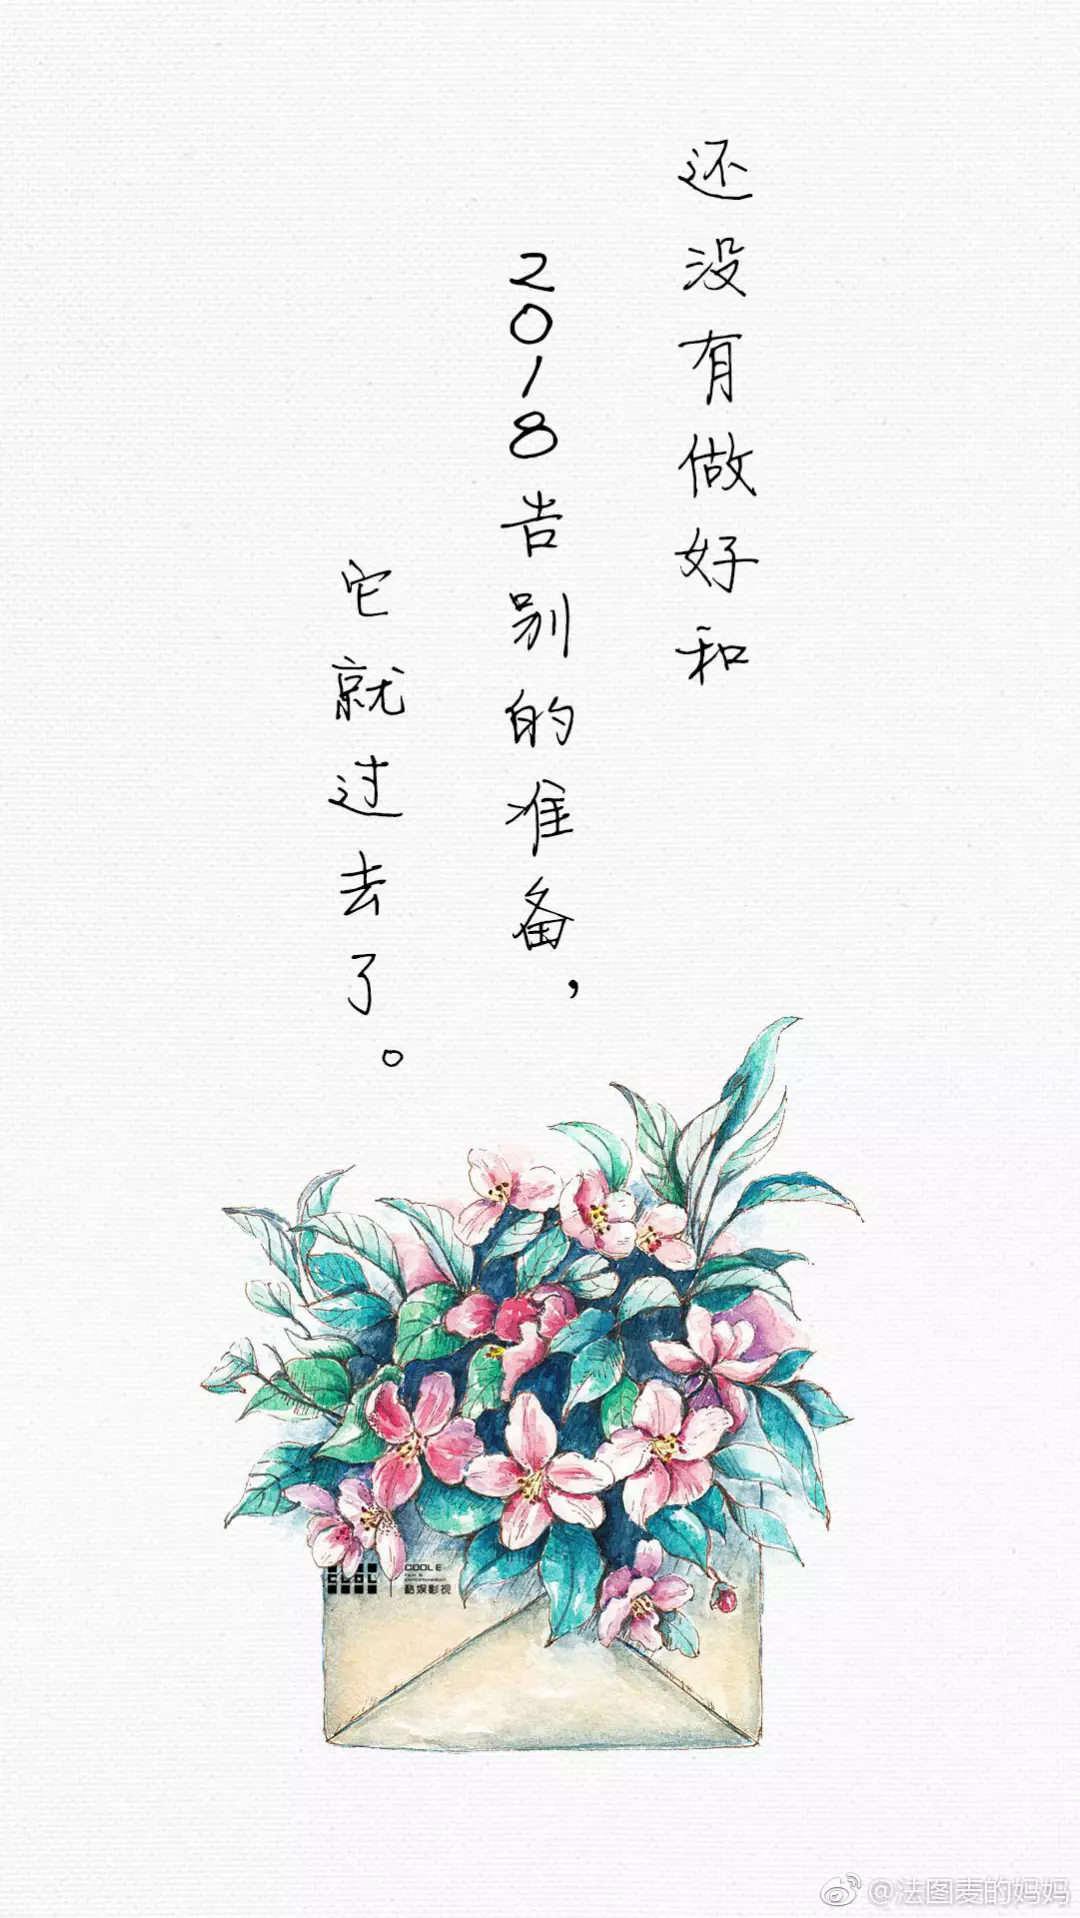 还没有做好和
2018告别的准备，
它就过去了。
COOL E
酷娱影视
@法图麦的妈妈